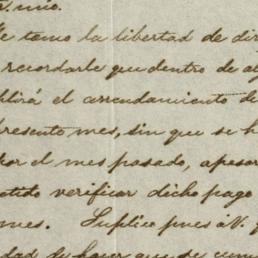 r. mio.
e tomo la libertad de dir
recordarle que dentro de al
plirá el arrendamiento de
presente mes, sin que se h
por el mes pasado, apesar
etido verificar dicho pago
mes. Suplico pues á V.
dad de hacer que se cum